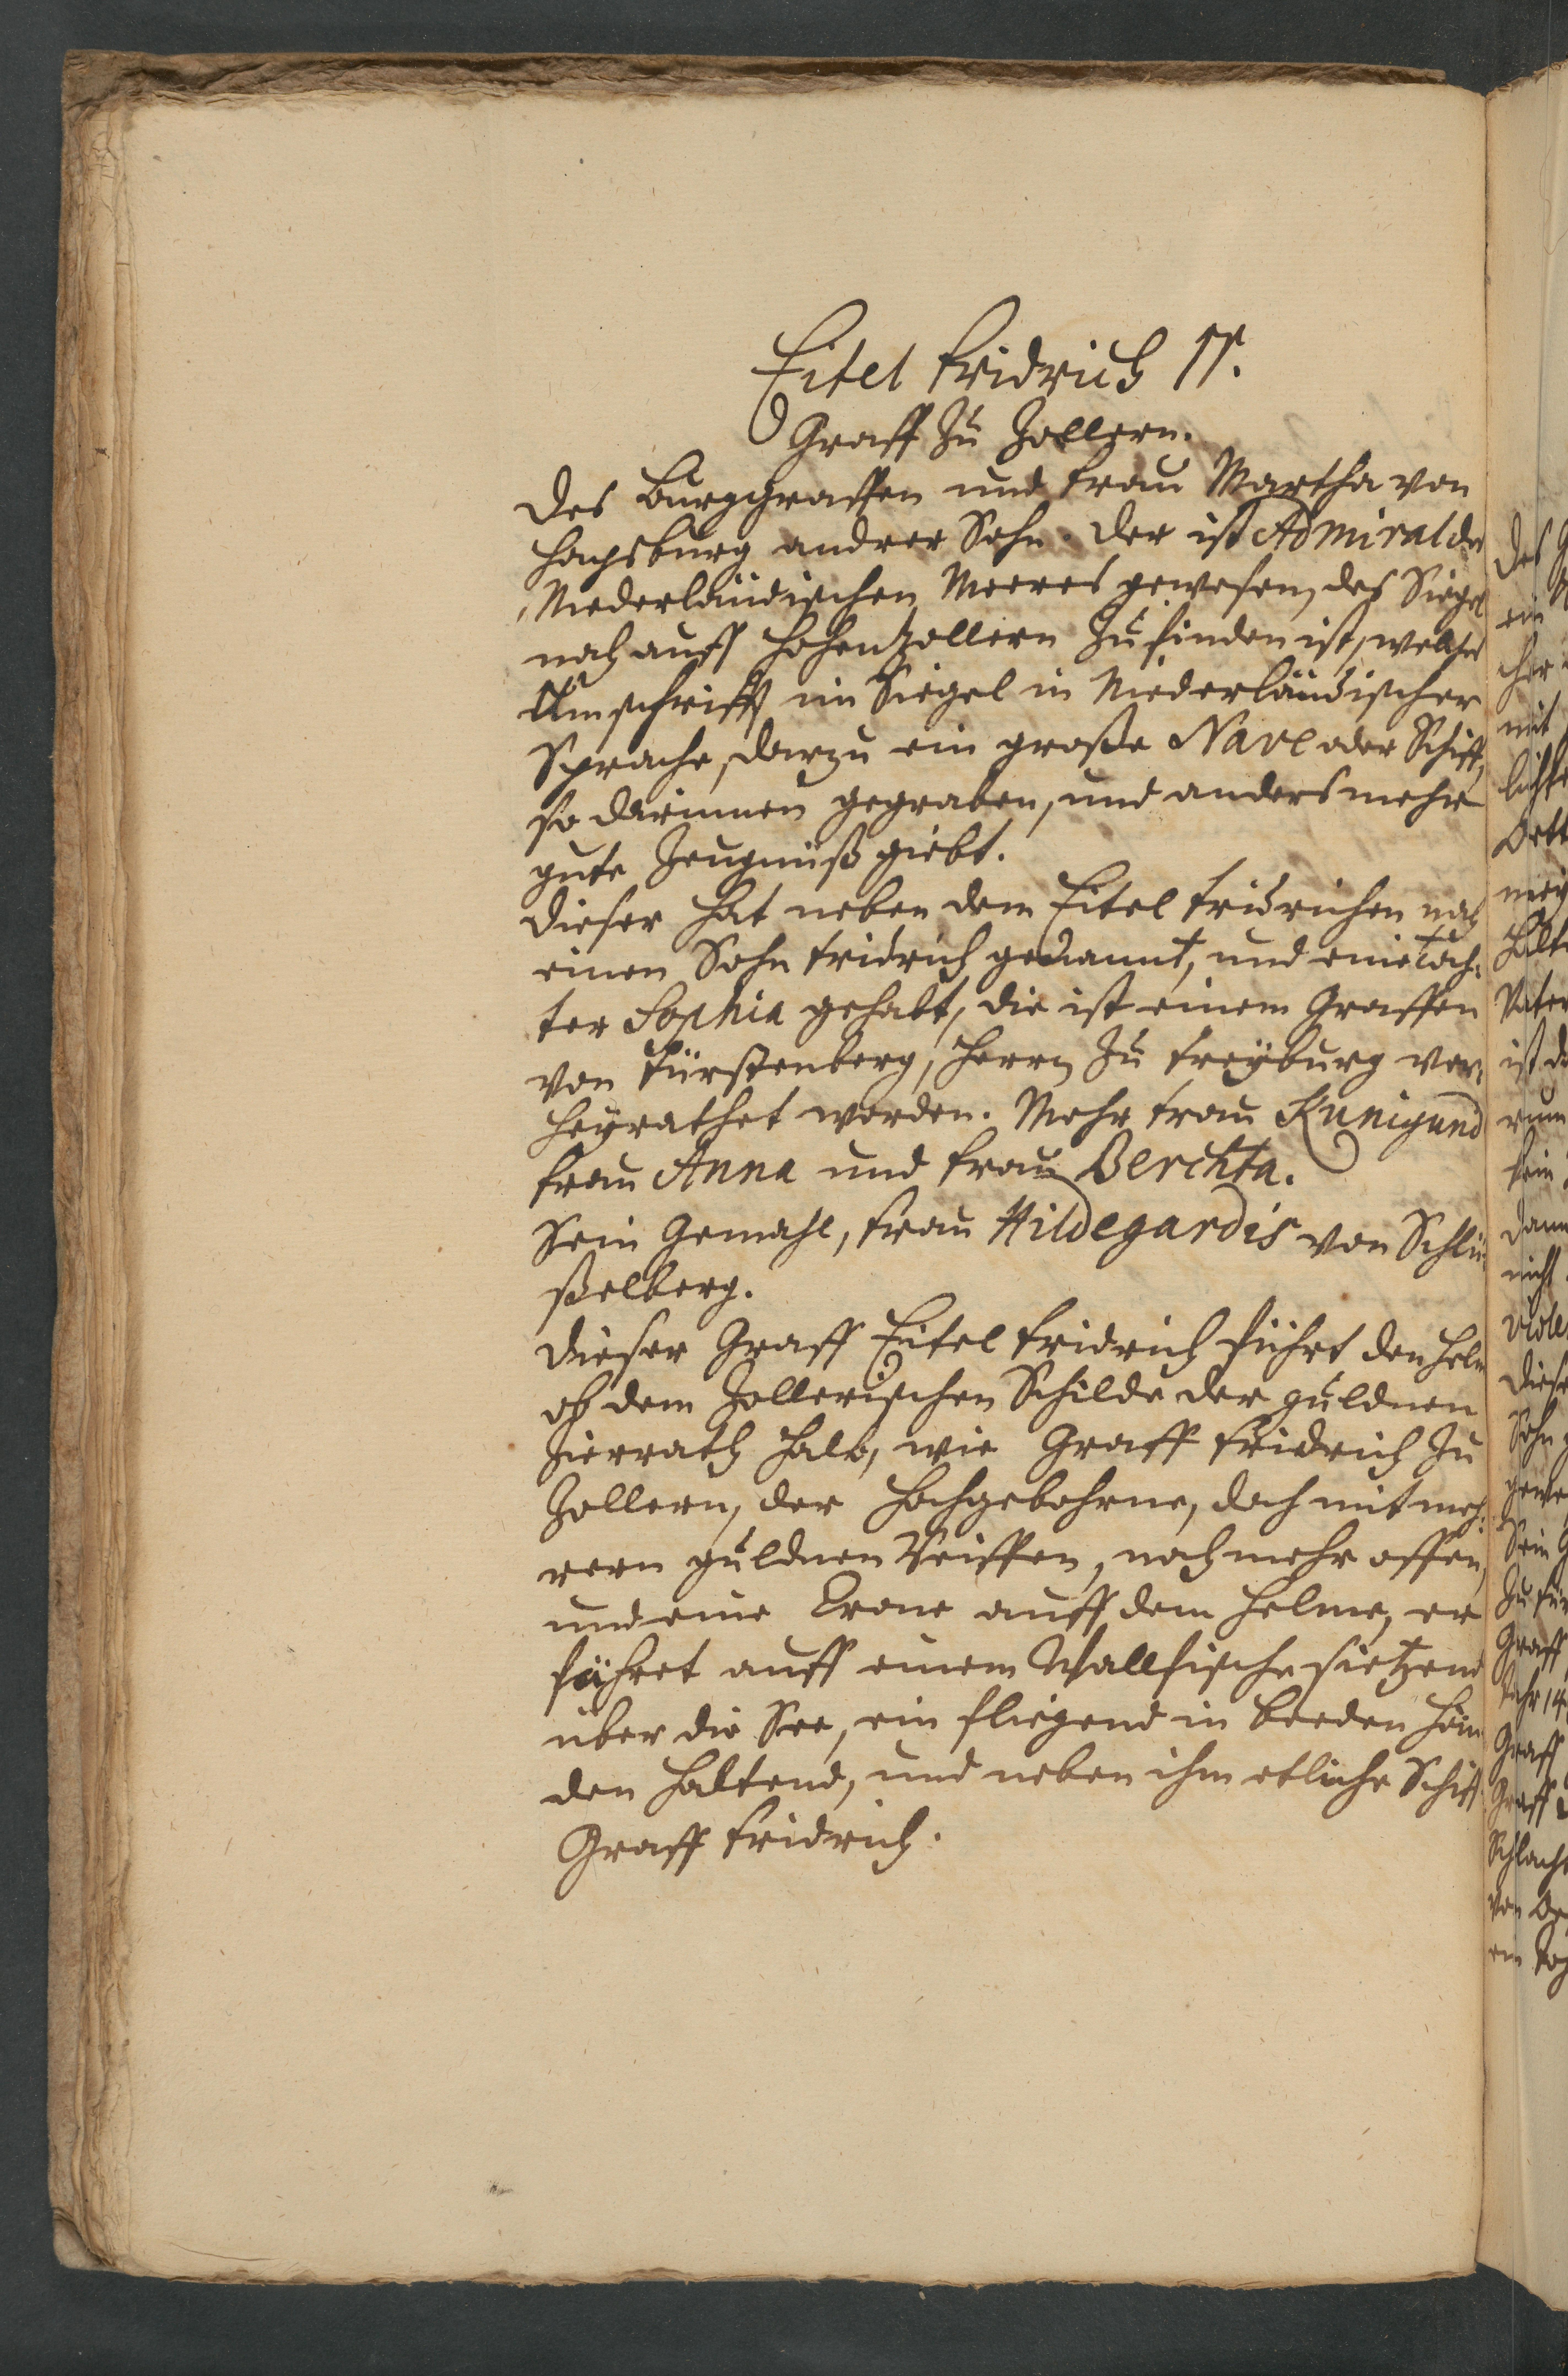 Eitel Fridrich II.
Graff Zu Zollern.
Des Burggraffen und Frau Martha von
Hapsburg andrer Sohn. Der ist Admiral des
Niederländischen Meeres gewesen, des Siegel
noch auff Hohenzollern zu finden ist, welches
Umschrifft im Siegel in Niederländischer
Sprache, darzu ein große Nave oder Schiff,
so darinnen gegraben, und anders mehr
gute Zeugnüß giebt.
Dieser hat neben dem Eitel Fridrichen noch
einen Sohn Fridrich genannt, und eine Toch-
ter Sophia gehabt, die ist einem Graffen
von Fürstenberg, Herrn zu Freyburg ver-
heyrathet worden. Mehr Frau Kunigund
Frau Anna und Frau Berchta.
Sein Gemahl, Frau Hildegardis von Schlü-
ßelberg.
Dieser Graff Eitel Fridrich führt den Helm
ob dem Zollerischen Schilde der güldnen
Zierrath halb, wie Graff Fridrich zu
Zollern, der Hochgebohrne, doch mit meh-
rern güldnen Reiffen, noch mehr offen,
und eine Crone auff dem Helme, er
fähret auff einem Wallfische sietzend
über die See, ein fliegend in beeden Hän-
den haltend, und neben ihm etliche Schiff
Graff Fridrich.